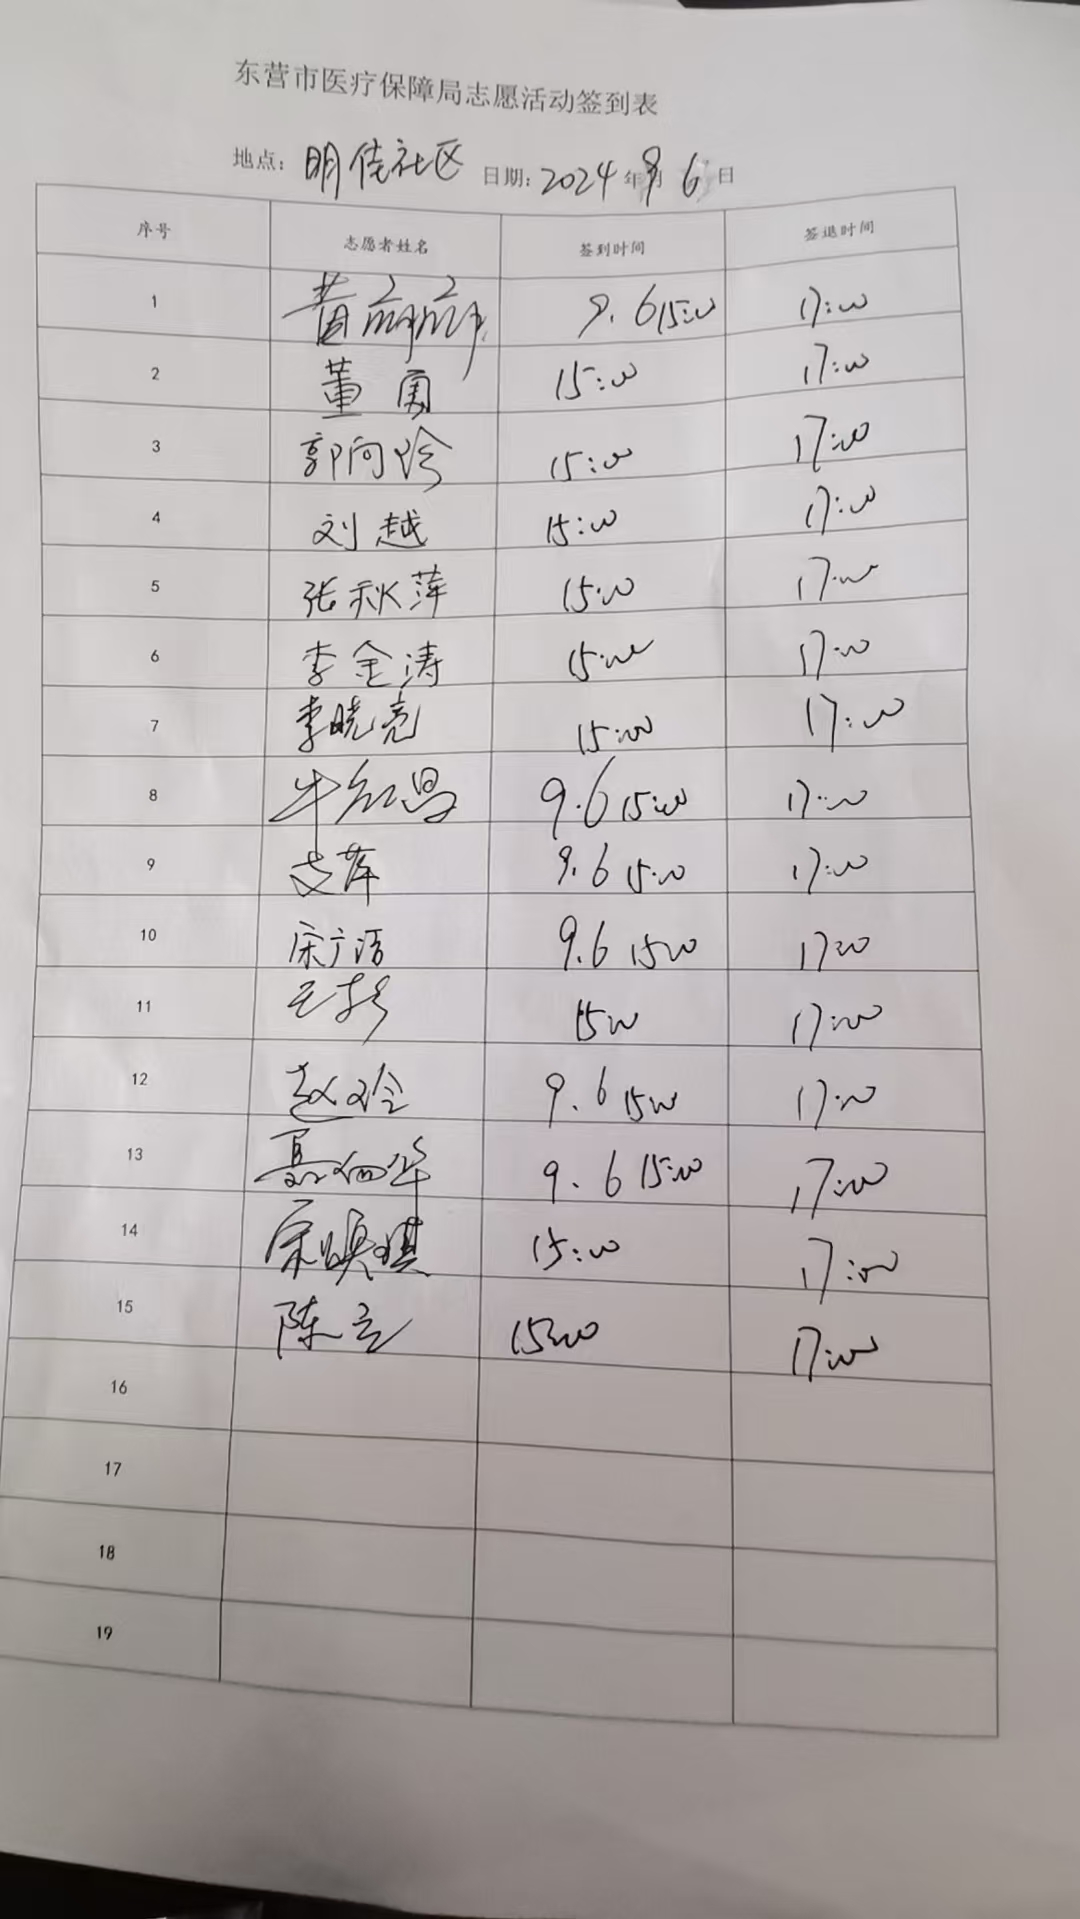 东营市医疗保障局志愿活动签到表
地点: 明佳社区 日期: 2024年9月6日
序号 志愿者姓名 签到时间 签退时间
1 9.6 15:00 17:00
2 董勇 15:00 17:00
3 郭向玲 15:00 17:00
4 刘越 15:00 17:00
5 张秋萍 15:00 17:00
6 李金涛 15:00 17:00
7 李晓亮 15:00 17:00
8 牛红昌 9.6 15:00 17:00
9 9.6 15:00 17:00
10 宋广洁 9.6 1500 1700
11 1500 17:00
12 赵玲 9.6 1500 17:00
13 聂向华 9.6 15:00 17:00
14 15:00 17:00
15 陈立 15:00 17:00
16
17
18
19